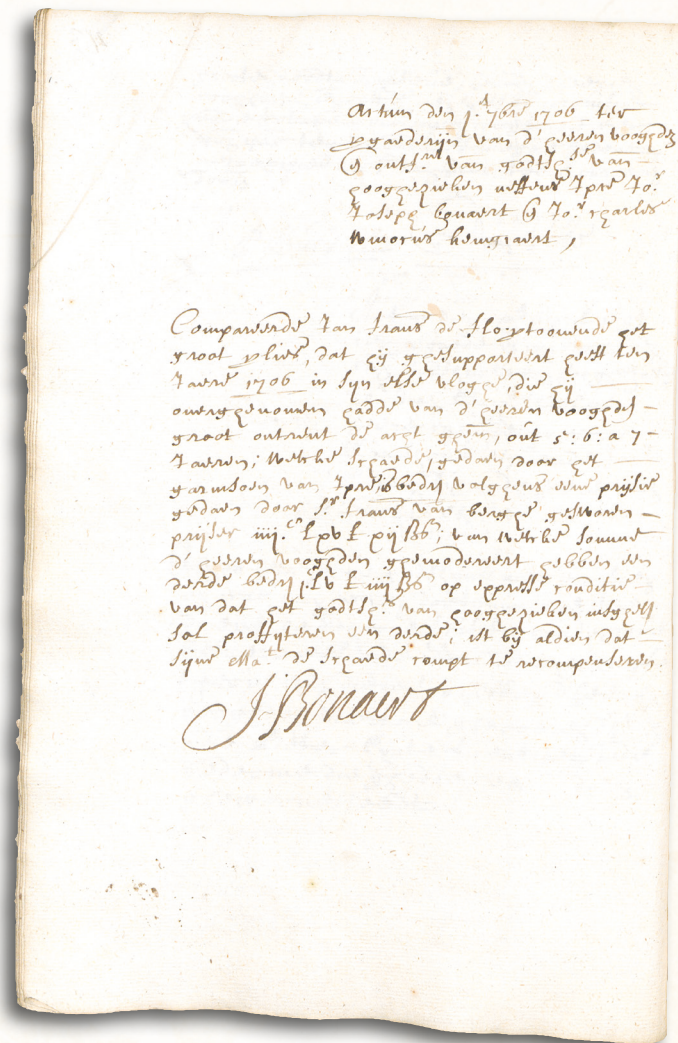 Actum den 1.ᵈ 7bre 1706 ter
vgaederijn van d'heeren vooghden
en ontf.ʳˢ van godtsh.ˢᵉ van
hooghezieken neffens Ipre Jo.ʳ
Joseph bonaert en Jo.ʳ charles
winocus heingiaert,
Compareerde Jan frans de flo: vtoonende het
groot vlies, dat hij ghesupporteert heeft ten
Jaere 1706 in syn elst vlogge, die hij
overghenomen hadde van d'heeren vooghd.
groot ontrent de acht ghem., out 5: 6: a 7
Jaeren; welcke schaede, gedaen door het
garnisoen van Ipre, is bedr. volghens eene prijsie
gedaen door s.ʳ frans van berghe gesworen
prijser iiij.ᶜ lxv £ xij ß; van welcke somme
d'heeren vooghden ghemodereert hebben een
derde bedr. j.ᶜ lv £ iiij ß op expresse conditie
van dat het godtsh.ˢ van hooghezieken insghel.
sal proffyteren een derde; ist bij aldien dat
sijne Ma.ᵗ de schaede compt te recompenseren.
J. Bonaert